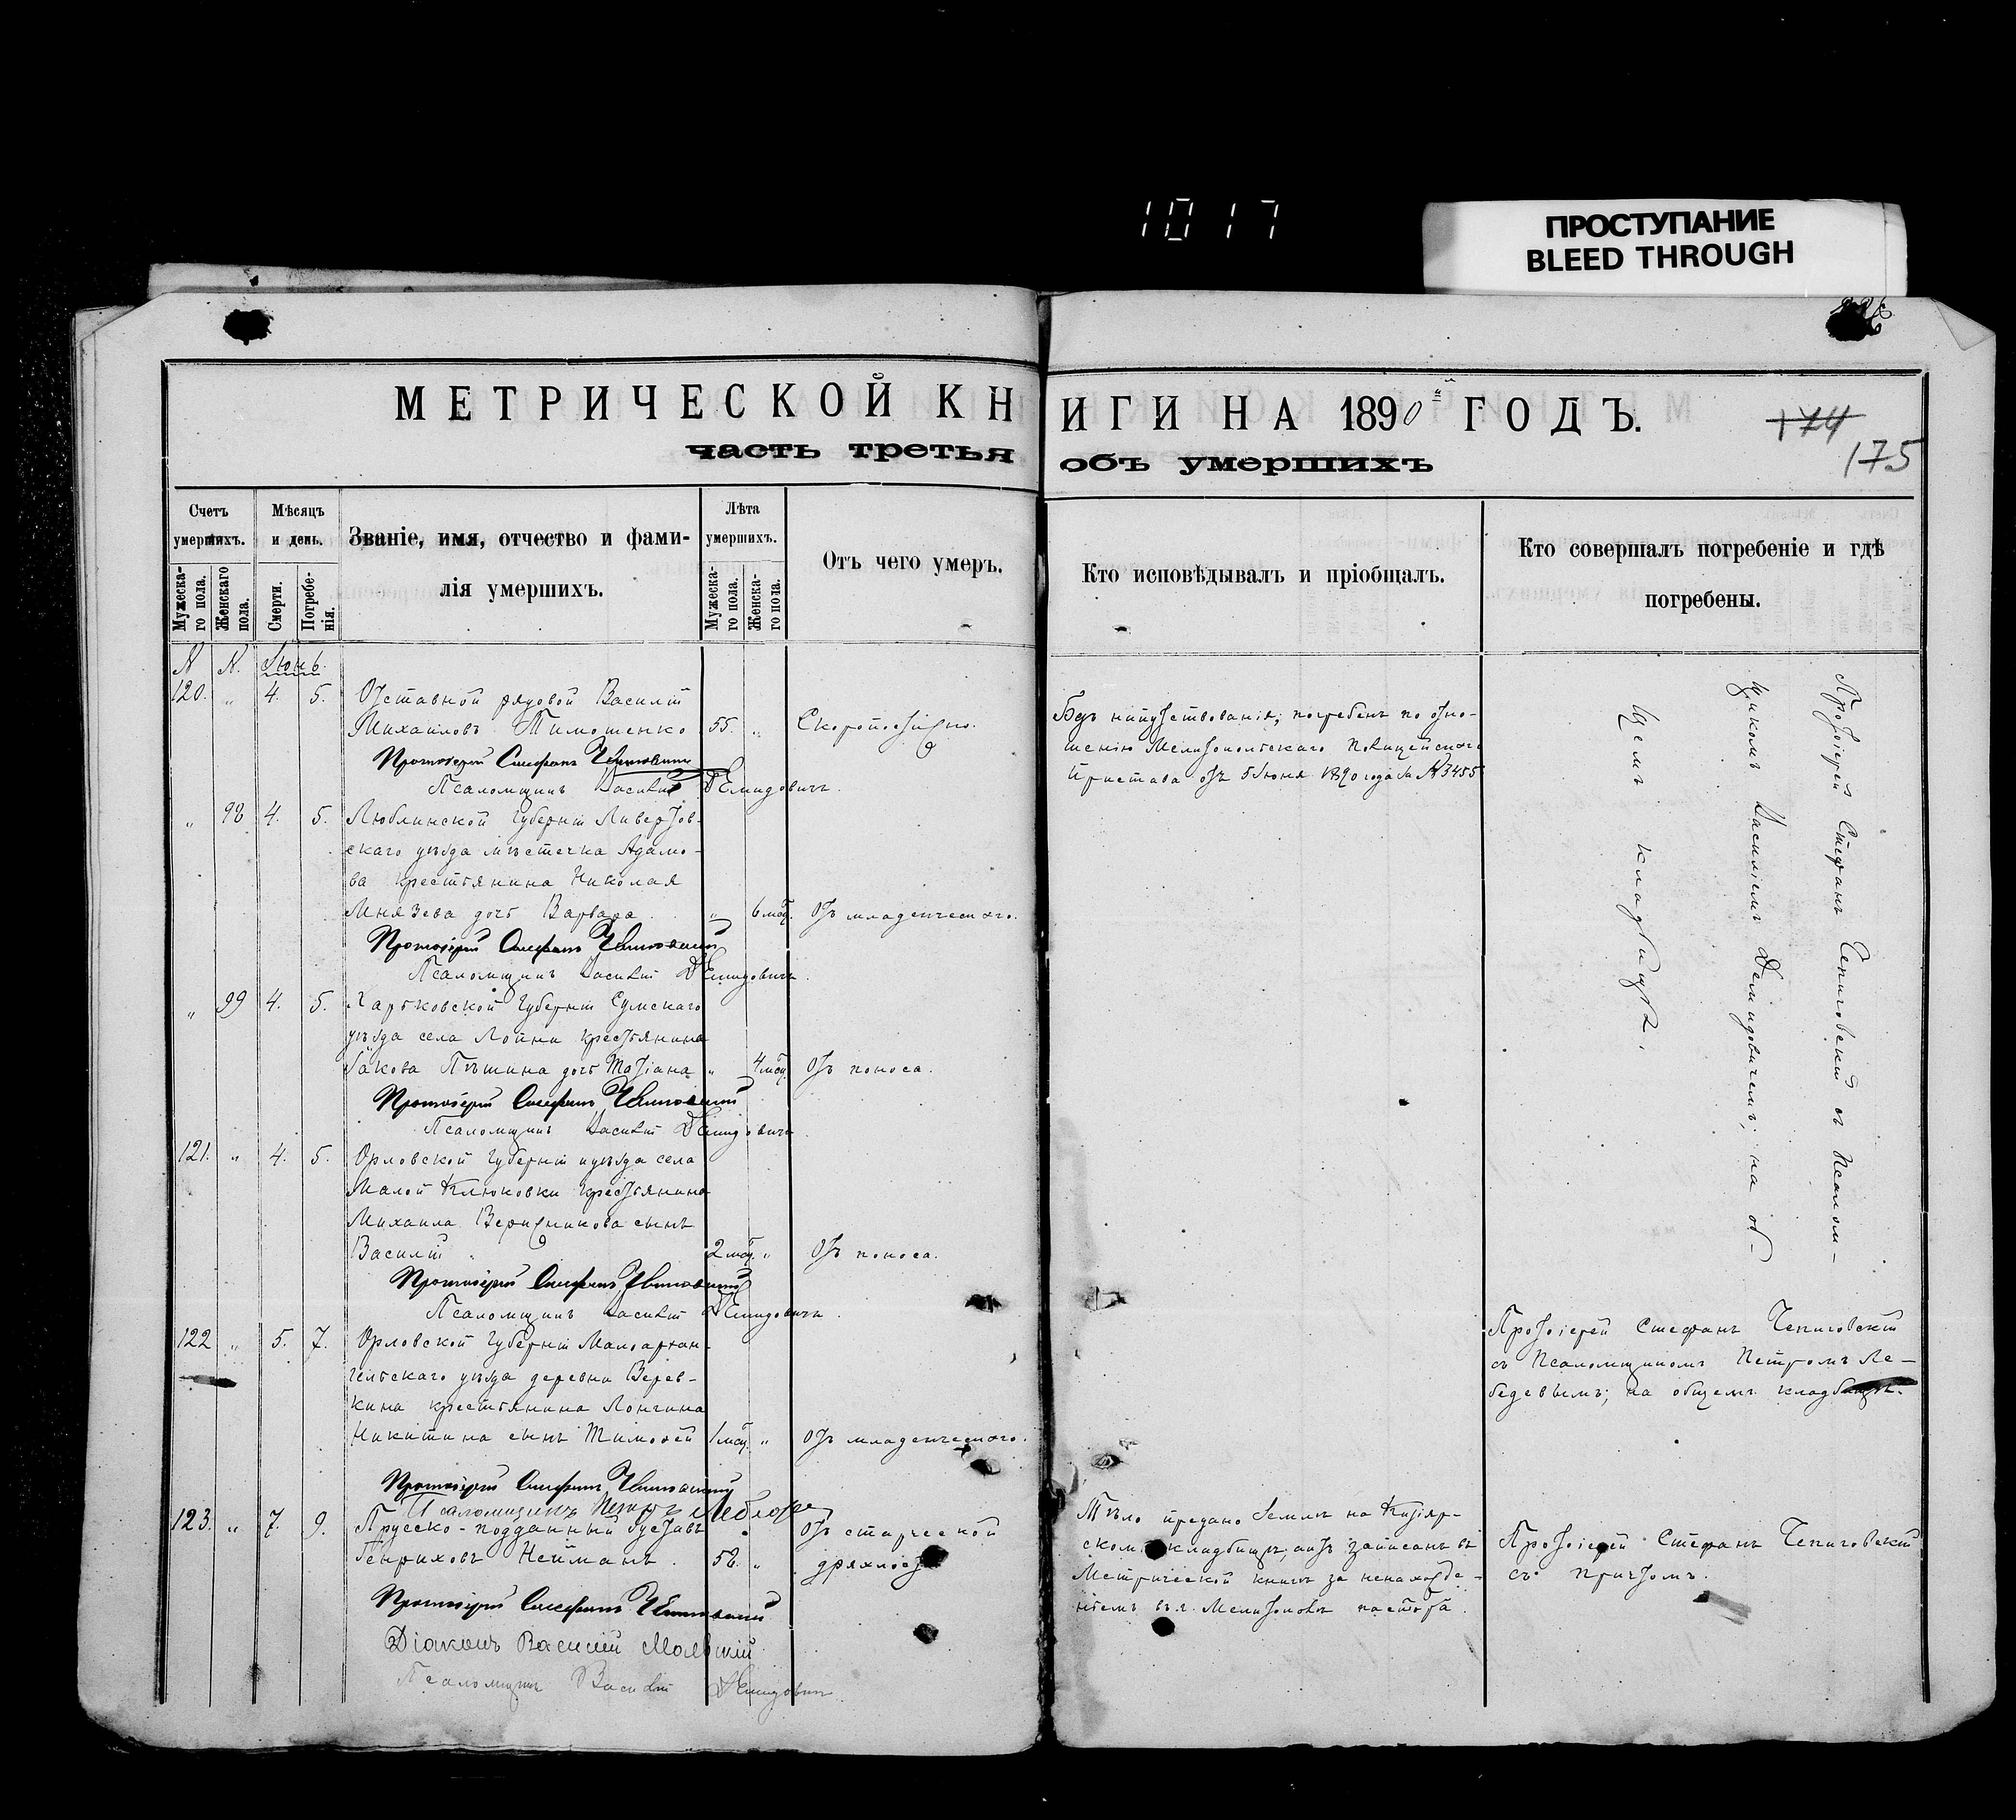 1017
ПРОСТУПАНИЕ
BLEED THROUGH
МЕТРИЧЕСКОЙ КНИГИ НА 1890 ГОДЪ.
174
175
часть третья объ умершихъ
Счетъ умершихъ.
Мужеска-го пола.
Женскаго пола.
Мѣсяцъ и день.
Смерти.
Погребе-нія.
Званіе, имя, отчество и фами-
лія умершихъ.
Лѣта умершихъ.
Мужеска-го пола.
Женска-го пола.
Отъ чего умеръ.
Кто исповѣдывалъ и пріобщалъ.
Кто совершалъ погребеніе и гдѣ
погребены.
N N. Іюнь.
120. " 4. 5. Отставной рядовой Василій
Михаиловъ Тимошенко 55. " Скоропостижно.
Протоіерей Стефанъ Чепиговскій
Псаломщикъ Василій Демидовичъ.
Безъ напутствованія; погребенъ по отно-
шенію Мелитопольскаго Полицейскаго
Пристава отъ 5 Іюня 1890 года за N 3455
" 98 4. 5. Люблинской губерніи
скаго уѣзда мѣстечка Адамо-
ва крестьянина Николая
Мнязева дочь Варвара " 6 мѣс. Отъ младенческаго.
Протоіерей Стефанъ Чепиговскій
Псаломщикъ Василій Демидовичъ.
" 99 4. 5. Харьковской губерніи Сумскаго
уѣзда села крестьянина
Якова дочь Татіана " 4 мѣс. Отъ поноса.
Протоіерей Стефанъ Чепиговскій
Псаломщикъ Василій Демидовичъ
121. " 4. 5. Орловской губерніи и уѣзда села
Малой Клюковки крестьянина
Михаила сынъ
Василій 2 мѣс. " Отъ поноса.
Протоіерей Стефанъ Чепиговскій
Псаломщикъ Василій Демидовичъ.
Протоіерей Стефанъ Чепиговскій съ Псалом-
щикомъ Василіемъ Демидовичемъ; на об-
щемъ кладбищѣ.
122 " 5. 7. Орловской губерніи Малоархан-
гельскаго уѣзда деревни Верев-
кина крестьянина Лонгина
Никитина сынъ Тимофей 1 мѣс. " Отъ младенческаго.
Протоіерей Стефанъ Чепиговскій
Псаломщикъ Петръ Лебедевъ
Протоіерей Стефанъ Чепиговскій
съ Псаломщикомъ Петромъ Ле-
бедевымъ; на общемъ кладбищѣ.
123. " 7. 9. Прусско-подданный Густавъ
Генриховъ Нейманъ. 58. " Отъ старческой
дряхлости
Протоіерей Стефанъ Чепиговскій
Діаконъ Василій
Псаломщикъ Василій Демидовичъ
Тѣло предано землѣ на Кизіяр-
скомъ кладбищѣ, актъ записанъ въ
Метрической книгѣ за ненахожде-
ніемъ въ г. Мелитополѣ пастора.
Протоіерей Стефанъ Чепиговскій
съ причтомъ.